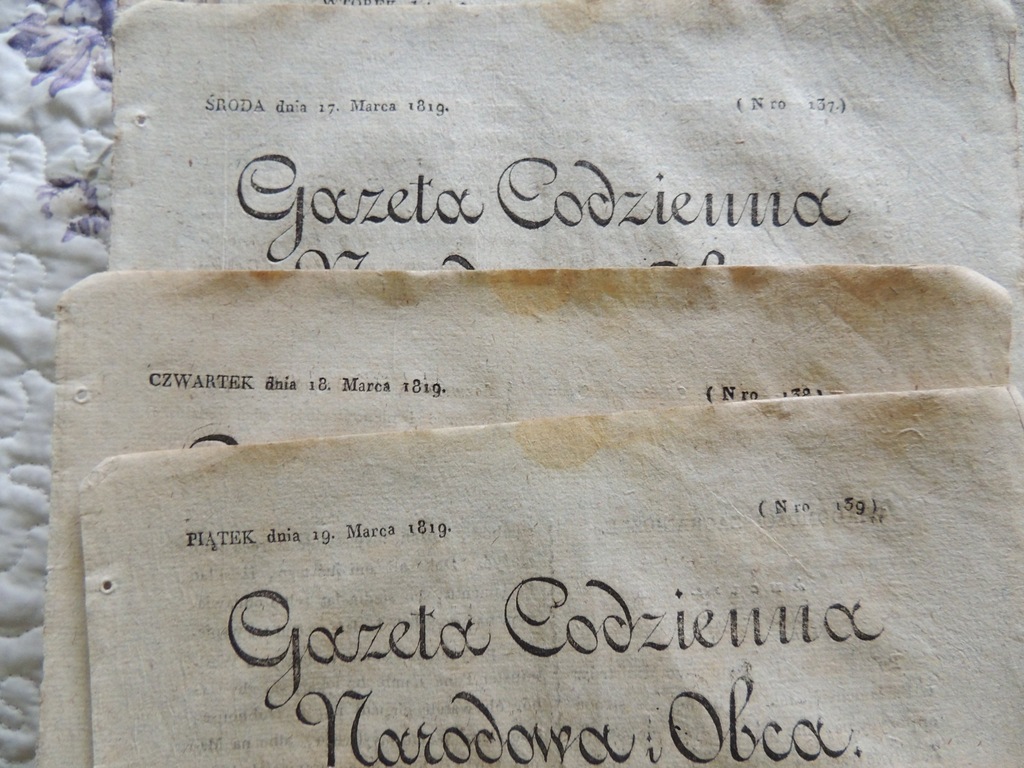 WTOREK
ŚRODA dnia 17. Marca 1819. (Nro 137.)
Gazeta Codzienna
Narodowa i Obca
CZWARTEK dnia 18. Marca 1819. (Nro 138)
PIĄTEK dnia 19. Marca 1819. (Nro 139).
Gazeta Codzienna
Narodowa i Obca.